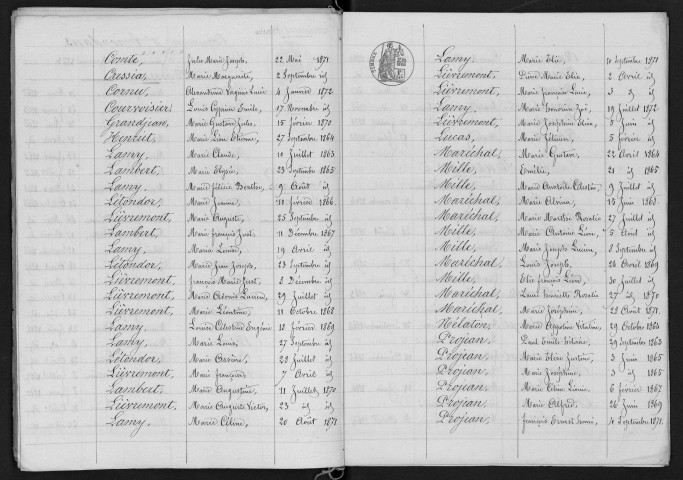 Comte, Jules Marie Joseph 22 Mai 1871
Cressia, Marie Marguerite, 2 Septembre id
Cornu, 4 Janvier 1872
Courvoisier, Louis Cyprien Emile, 17 Novembre id
Grandjean, Marie Gustave Jules, 15 février 1870
Henriet, Marie Léon Etienne, 27 Septembre 1864
Lamy, Marie Claude, 10 Juillet 1863
Lambert, Marie Elysée, 23 Septembre 1865
Lamy, Marie félicie 9 Août id
Létondor, Marie Jeanne, 10 février 1866
Lièvremont, Marie Auguste, 25 Septembre id
Lambert, Marie françois Just, 11 Décembre 1867
Lamy, Marie Louise, 19 Avril id
Létondor, Marie Jean Joseph, 23 Septembre id
Lièvremont, françois Marie Just, 2 Décembre id
Lièvremont, Marie 29 Juillet id
Lièvremont, Marie Léontine, 11 Octobre 1868
Lamy, Louise Célestine Eugénie 12 février 1869
Lamy, Marie Louis, 27 Septembre id
Létondor, Marie Arsène, 29 Juillet id
Lièvremont, Marie françoise, 7 Avril id
Lambert, Marie Augustine, 11 Juillet 1870
Lièvremont, Marie Auguste Victor, 23 id id
Lamy, Marie Céline, 20 Août 1871
Lamy, Marie Elie, 10 Septembre 1871
Lièvremont, Pierre Marie Elie, 2 Avril id
Lièvremont, Marie françois Louis, 3 id id
Lamy, Marie 19 Juillet 1872
Lièvremont, Marie Joséphine Elisa, 5 Juin id
Lucas, Marie 5 février id
Maréchal, Marie Gustave, 22 Avril 1864
Mille, Emilie, 21 id 1865
Mille, Marie Célestin, 9 Juillet id
Maréchal, Marie Alvina, 15 Juin 1868
Maréchal, Marie Rosalie 27 Juillet id
Mille, Marie Antoine Léon, 5 Août id
Mille, Marie Joseph Lucien, 8 Septembre id
Maréchal, Louis Joseph, 26 Avril 1869
Mille, Elie françois Léon, 30 Juillet id
Maréchal, Rosalie 27 id 1870
Maréchal, Marie Joséphine, 29 Août 1871
Nélaton, Marie 29 Octobre 1864
Projean, Paul Emile 29 Septembre 1863
Projean, Marie Elisa Justine, 3 Juin 1865
Projean, Marie Joséphine, 3 id 1865
Projean, Marie 6 février 1867
Projean, Marie Alfred, 26 Juin 1869
Projean, françois Ernest 4 Septembre 1871